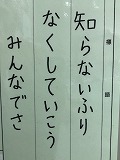 知らないふり
なくしていこう
みんなでさ